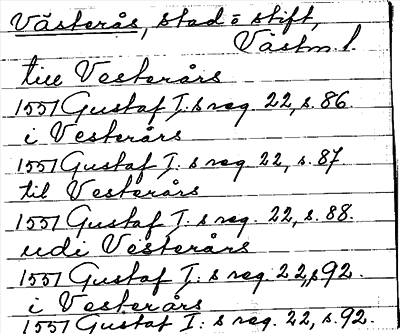 Västerås, stad o stift,
Västm. l.
till Vesterårs
1551 Gustaf I:s reg. 22, s. 86.
i Vesterårs
1551 Gustaf I:s reg. 22, s. 87
til Vesterårs
1551 Gustaf I:s reg. 22, s. 88.
udi Vesterårs
1551 Gustaf I:s reg. 22, s 92.
i Vesterårs
1551 Gustaf I:s reg. 22, s. 92.